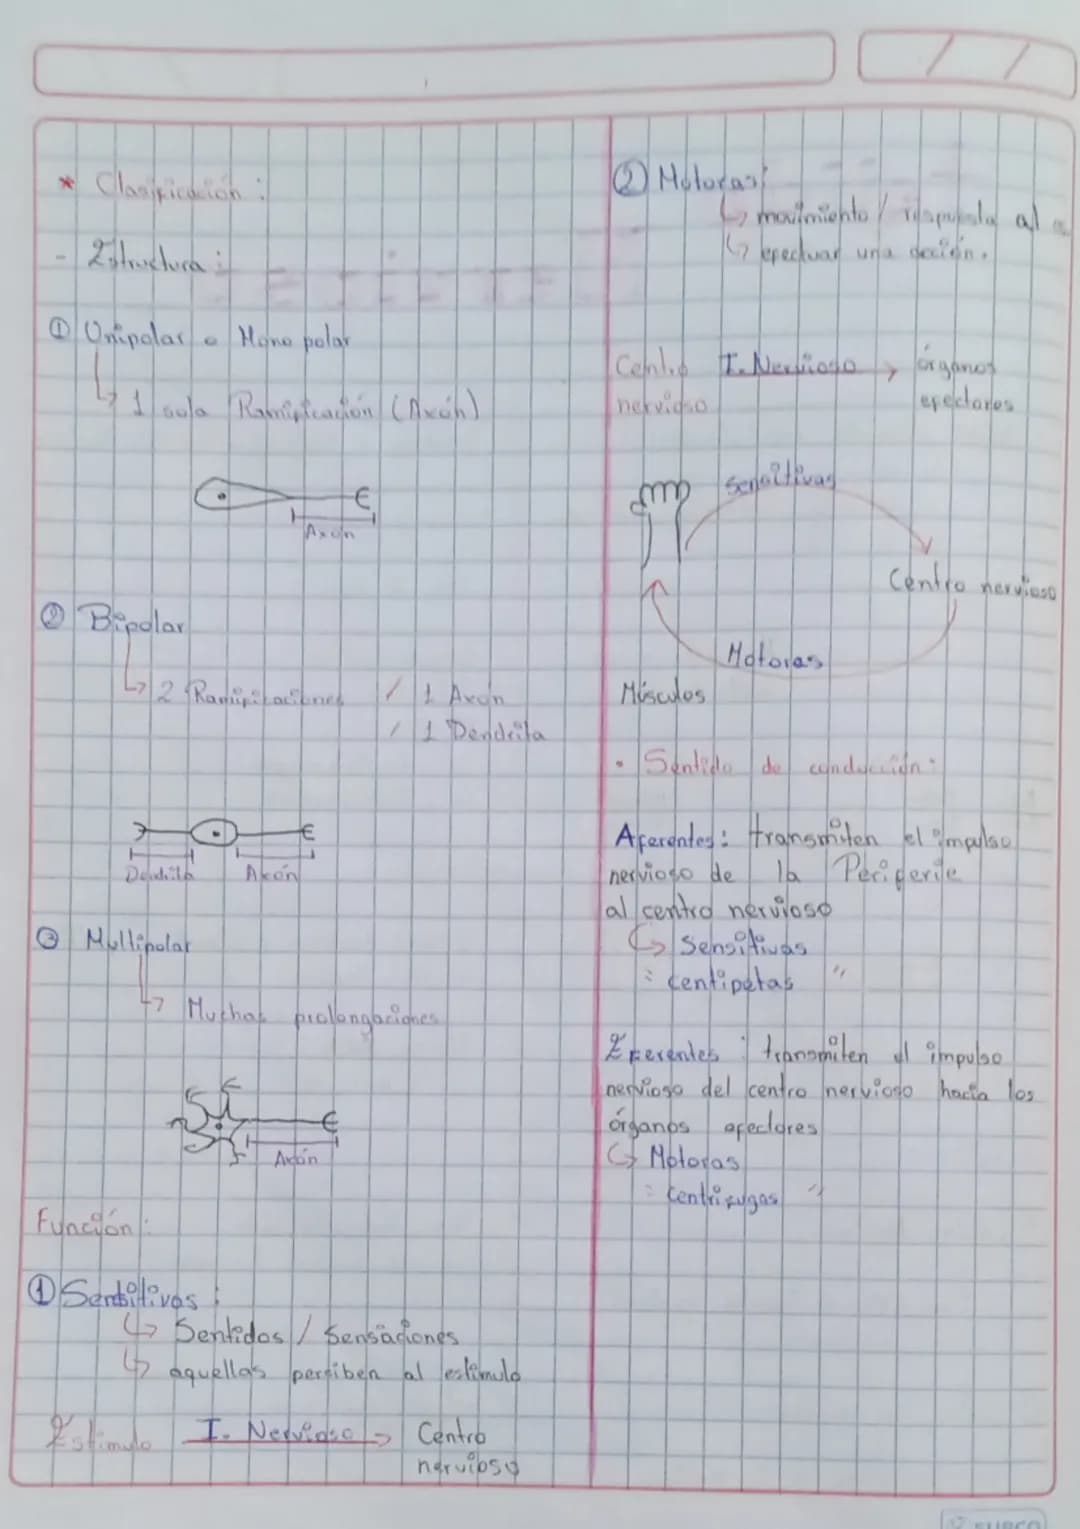 * Clasificación :
- Estructura :
① Unipolar o Mono polar
↳ 1 sola Ramificación (Axón)
Axón
② Bipolar
↳ 2 Ramificaciones / 1 Axón
/ 1 Dendrita
Dendrita Axón
③ Multipolar
↳ Muchas prolongaciones
Axón
Función :
① Sensitivas :
↳ Sentidos / Sensaciones
↳ aquellas persiben al estimulo
Estimulo I. Nervioso → Centro
nervioso
② Motoras:
↳ movimiento / respuesta al
↳ efectuar una deción.
Centro I. Nervioso → órganos
nervioso efectores
sensitivas
Centro nervioso
Motoras
Músculos
• Sentido de conducción :
Aferentes : transmiten el impulso
nervioso de la Periferie
al centro nervioso
↳ Sensitivas
: centipetas "
Eferentes : transmiten el impulso
nervioso del centro nervioso hacia los
órganos efectores
↳ Motoras
: Centrifugas "